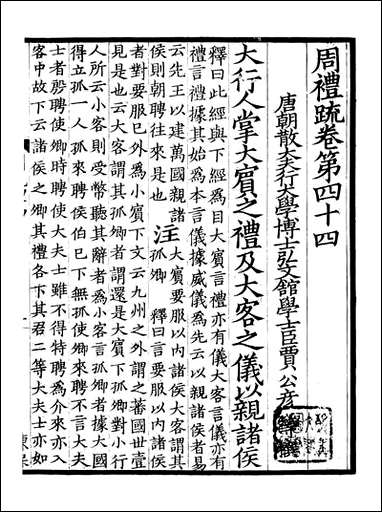 周禮疏卷第四十四
唐朝散大夫行太學博士弘文館學士臣賈公彥等撰
大行人掌大賓之禮及大客之儀以親諸侯
釋曰此經與下經為目大賓言禮亦有儀大客言儀亦有
禮言禮據其始為本言儀據威儀為先云以親諸侯者易
云先王以建萬國親諸
侯則朝聘往來是也
注
大賓要服以內諸侯大客謂其
孤卿 釋曰言要服以內諸侯
者對要服已外為小賓下文云九州之外謂之蕃國世壹
見是也大客謂其孤卿者謂還是大賓下孤卿對小行
人所云小客則受幣聽其辭者為小客言孤卿者據大國
得立孤一人孤來聘侯伯已下無孤使卿來聘不言大夫
士者殷聘使卿時聘使大夫士雖不得特聘為介來亦入
客中故下云諸侯之卿其禮各下其君二等大夫士亦如